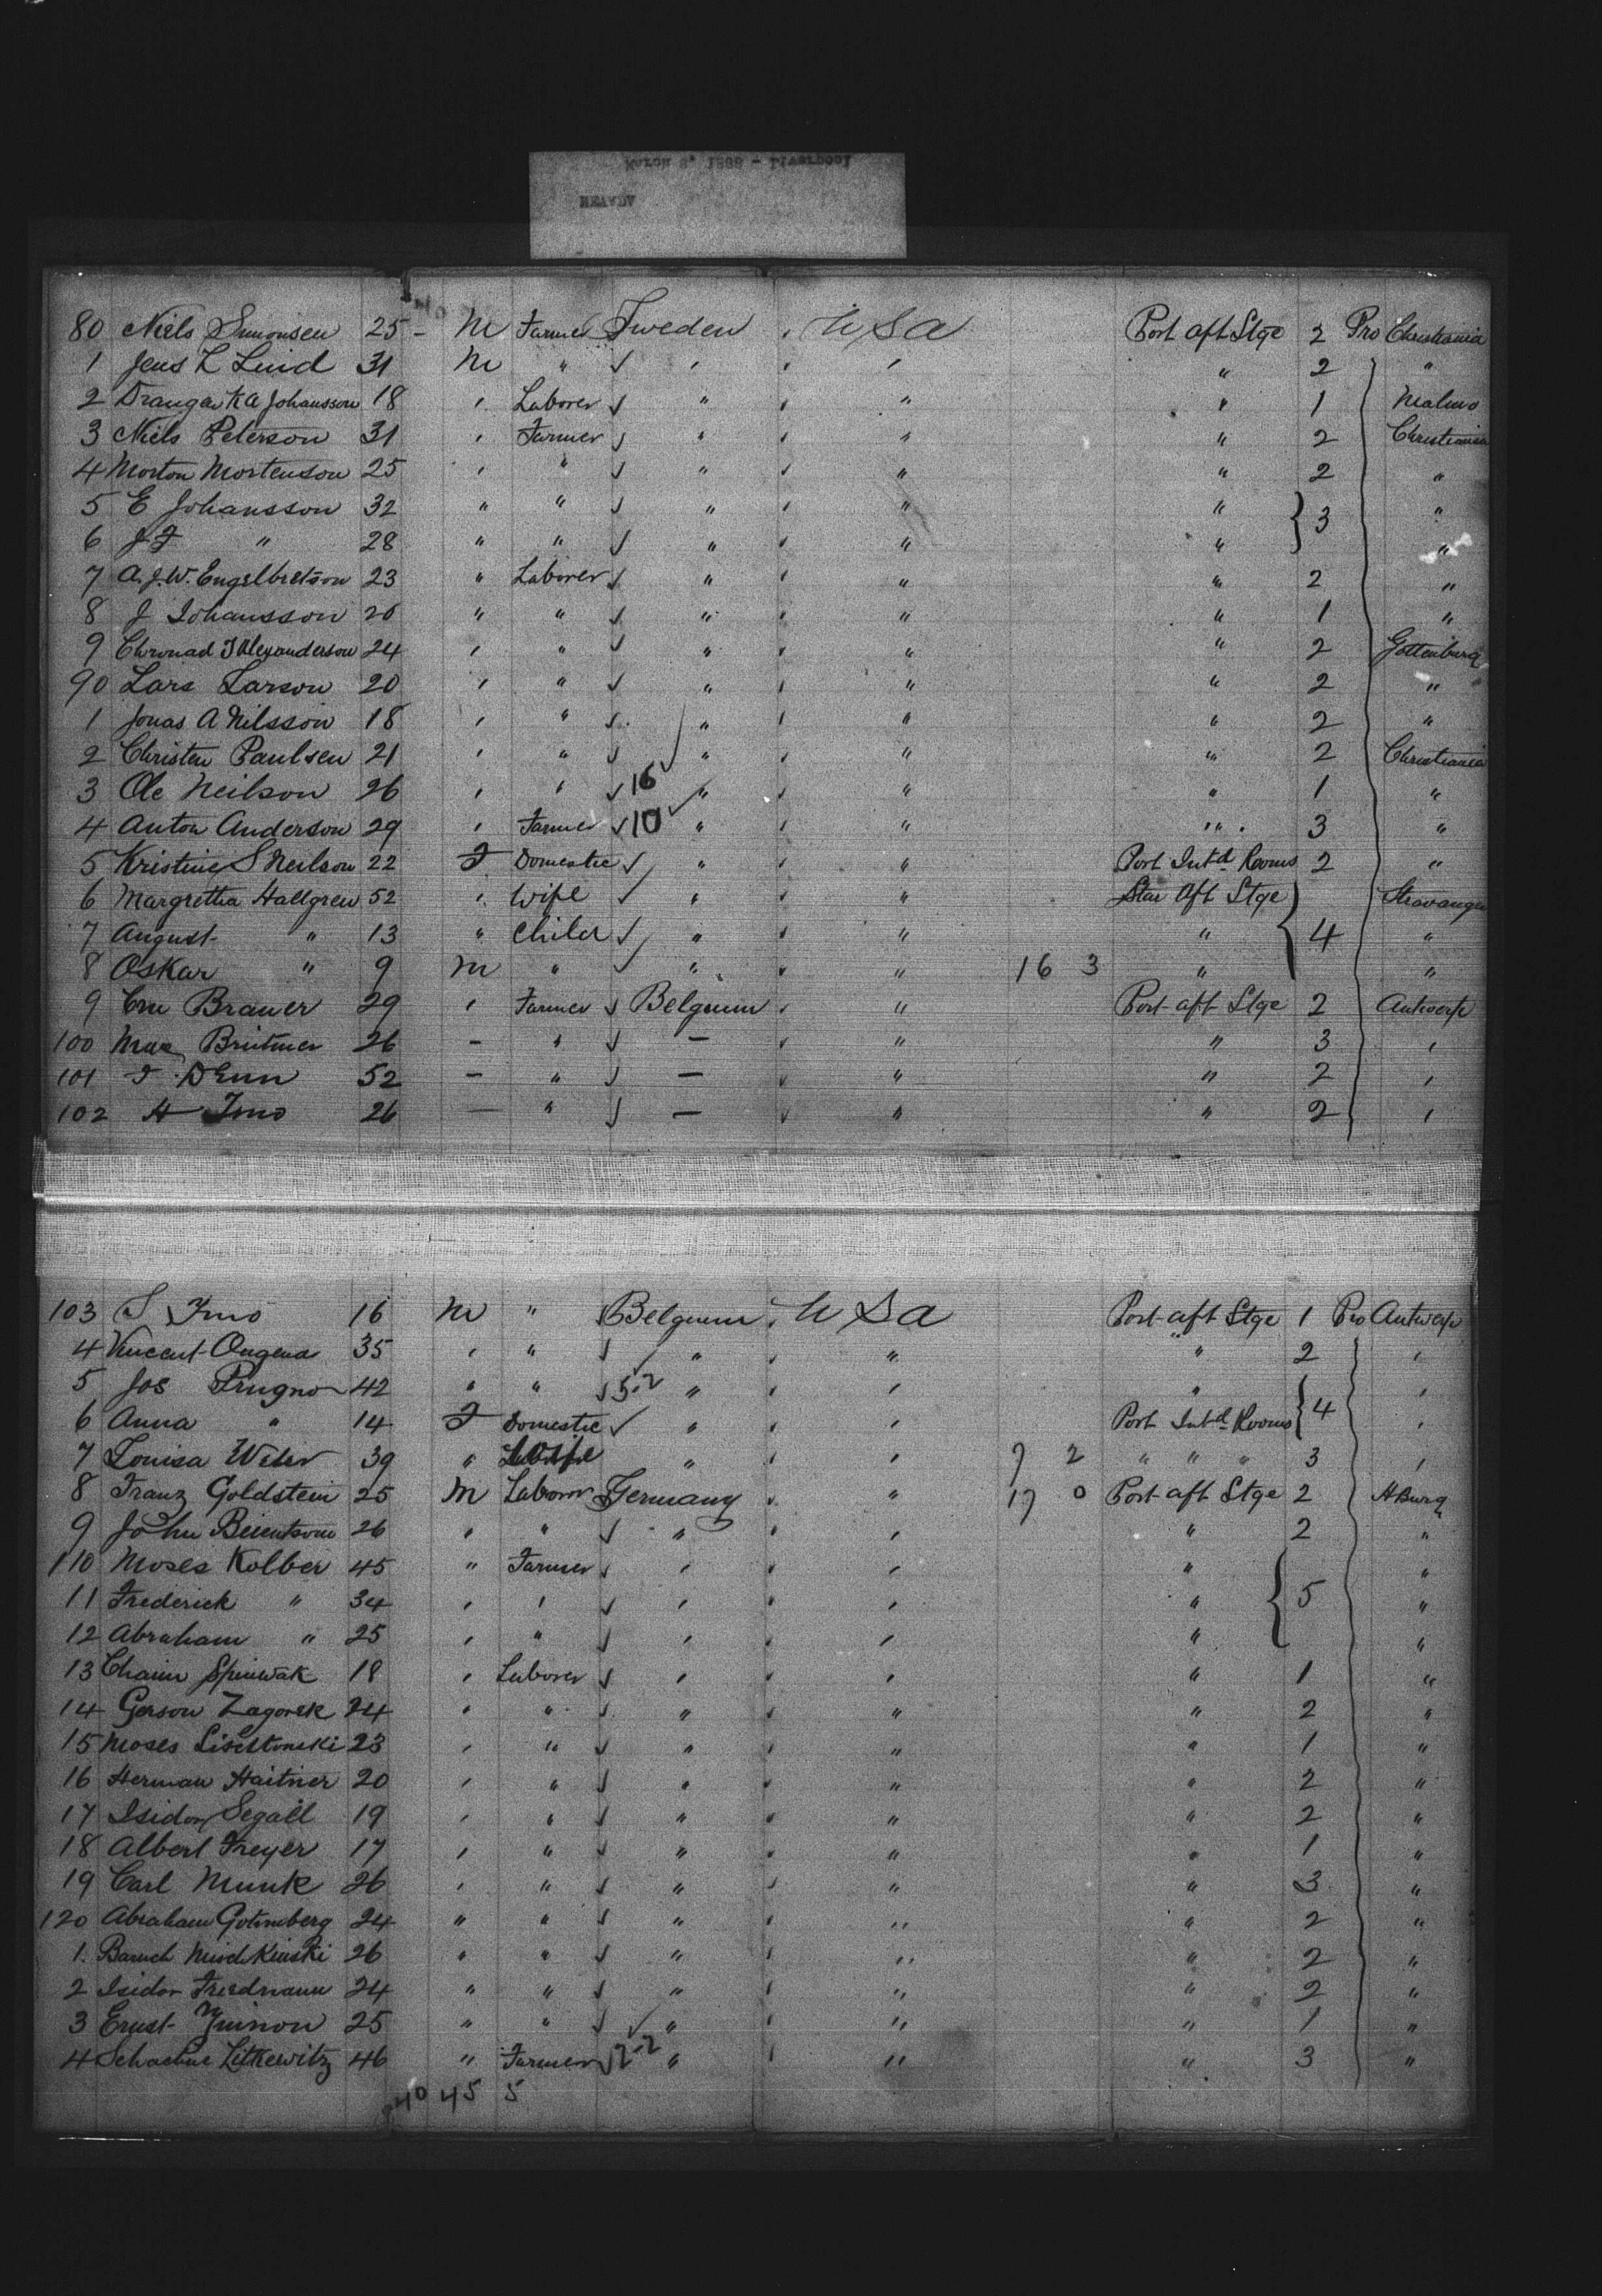 March 8, 1888 - Liverpool
NEAVDV
80 Niels Simonsen 25 - M Farmer Sweden " U S A Port aft Stge 2 Pro Christiania
1 Jens L Lind 31 M " " " " " 2 "
2 K A Johansson 18 " Laborer " " " " 1 Malmo
3 Niels Peterson 31 " Farmer " " " " 2 Christiania
4 Morton Mortenson 25 " " " " " " 2 "
5 E Johansson 32 " " " " " " 3 "
6 J F " 28 " " " " " " "
7 A. J. W. Engelbretson 23 " Laborer " " " " 2 "
8 J Johansson 20 " " " " " " 1 "
9 Alexanderson 24 " " " " " " 2 Gottenburg
90 Lars Larson 20 " " " " " " 2 "
1 Jonas A Nilsson 18 " " " " " " 2 "
2 Christen Paulsen 21 " " " " " " 2 Christiania
3 Ole Neilson 26 " " 16 " " " " 1 "
4 Anton Anderson 29 " Farmer 10 " " " " 3 "
5 Kristine S Neilson 22 F Domestic " " " Port Intd. Rooms 2 "
6 Margretha Hallgren 52 " Wife " " " Star Aft Stge Stavanger
7 August " 13 " Child " " " " 4 "
8 Oskar " 9 M " " " " 16 3 " "
9 Brauer 29 " Farmer Belgium " " Port aft Stge 2 Antwerp
100 Max Brutmer 26 - " - " " " 3 "
101 52 - " - " " " 2 "
102 H Imo 26 - " - " " " 2 "
103 S Imo 16 M " Belgium " U S A Port aft Stge 1 Pro Antwerp
4 Vincent Ongena 35 " " " " " " 2 "
5 Jos Prugno 42 " " 5-2 " " " " 4 "
6 Anna " 14 F Domestic " " " Port Intd. Rooms "
7 Louisa Weber 39 " Wife " " " 7 2 " " " 3 "
8 Franz Goldstein 25 M Laborer Germany " " 17 0 Port aft Stge 2 HBurg
9 John 26 " " " " " " 2 "
110 Moses Kolber 45 " Farmer " " " " "
11 Frederick " 34 " " " " " " 5 "
12 Abraham " 25 " " " " " " "
13 Chaim Spiewak 18 " Laborer " " " " 1 "
14 Gerson Zagorek 24 " " " " " " 2 "
15 Moses 23 " " " " " " 1 "
16 Herman Haitner 20 " " " " " " 2 "
17 Isidor Segall 19 " " " " " " 2 "
18 Albert Freyer 17 " " " " " " 1 "
19 Carl Munk 26 " " " " " " 3 "
120 Abraham 24 " " " " " " 2 "
1. Baruch 26 " " " " " " 2 "
2 Isidor Friedmann 24 " " " " " " 2 "
3 Ernst 25 " " " " " " 1 "
4 Litkewitz 46 " Farmer 2-2 " " " " 3 "
40 45 5